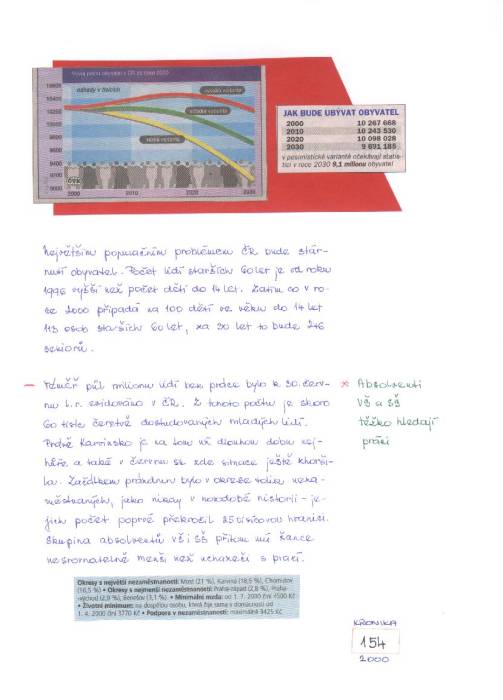 Vývoj počtu obyvatel v ČR do roku 2030
odhady v tisících
10600
10400
10200
10000
9800
9600
9400
9200
9000
vysoká varianta
střední varianta
nízká varianta
2000
2010
2020
2030
JAK BUDE UBÝVAT OBYVATEL
2000 10 267 668
2010 10 243 530
2020 10 098 028
2030 9 691 185
v pesimistické variantě očekávají statis-
tici v roce 2030 9,1 milionu obyvatel
Největším populačním problémem ČR bude stár-
nutí obyvatel. Počet lidí starších 60 let je od roku
1996 vyšší než počet dětí do 14 let. Zatím co v ro-
ce 2000 připadá na 100 dětí ve věku do 14 let
113 osob starších 60 let, za 30 let to bude 246
seniorů.
– Téměř půl milionu lidí bez práce bylo k 30. červ-
nu t.r. evidováno v ČR. Z tohoto počtu je skoro
60 tisíc čerstvě dostudovaných mladých lidí.
Právě Karvinsko je na tom už dlouhou dobu nej-
hůře a také v červnu se zde situace ještě zhorši-
la. Začátkem prázdnin bylo v okrese tolik neza-
městnaných, jako nikdy v novodobé historii - je-
jich počet poprvé překročil 25 tisícovou hranici.
Skupina absolventů VŠ i SŠ přitom má šance
nesrovnatelně menší než uchazeči s praxí.
* Absolventi
VŠ a SŠ
těžko hledají
práci
Okresy s největší nezaměstnaností: Most (21 %), Karviná (18,5 %), Chomutov
(16,5 %) • Okresy s nejmenší nezaměstnaností: Praha-západ (2,8 %), Praha-
východ (2,9 %), Benešov (3,1 %) • Minimální mzda: od 1. 7. 2000 činí 4500 Kč
• Životní minimum: na dospělou osobu, která žije sama v domácnosti od
1. 4. 2000 činí 3770 Kč • Podpora v nezaměstnanosti: maximálně 9425 Kč
KRONIKA
154
2000